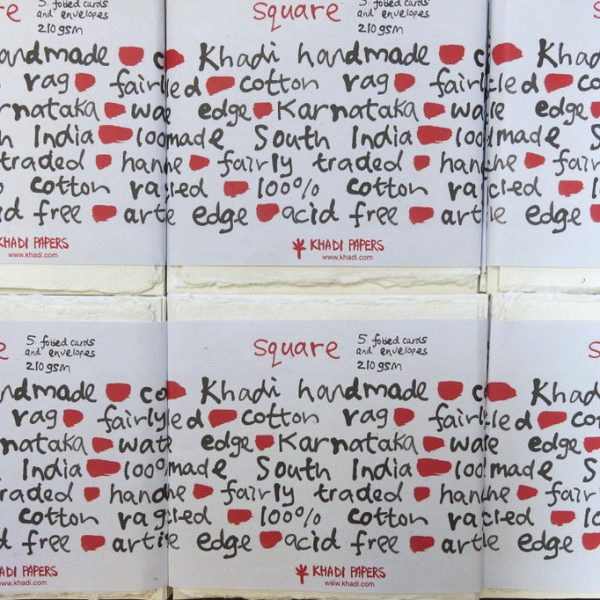 ndmade
rag fairl
rnataka wat
India 100
traded hand
cotton ra
id free arti
KHADI PAPERS
www.khadi.com
square
5 folded cards
and envelopes
210 gsm
Khadi handmade c
led cotton rag fairl
edge Karnataka wa
made South India 100
ne fairly traded han
cled 100% cotton ra
e edge acid free art
KHADI PAPERS
www.khadi.com
s
Khad
led co
edge
made S
ne fair
cled 10
e edge
5 folded cards
and envelopes
210 gsm
ndmade co
rag fairly
nataka wate
India 100%
raded hand
cotton rag
d free arti
KHADI PAPERS
www.khadi.com
square
5 folded cards
and envelopes
210 gsm
Khadi handmade c
led cotton rag fairl
edge Karnataka wa
made South India 100
ne fairly traded han
cled 100% cotton ra
e edge acid free art
KHADI PAPERS
www.khadi.com
s
Khad
led cot
edge
made S
ne fair
cled 10
e edge